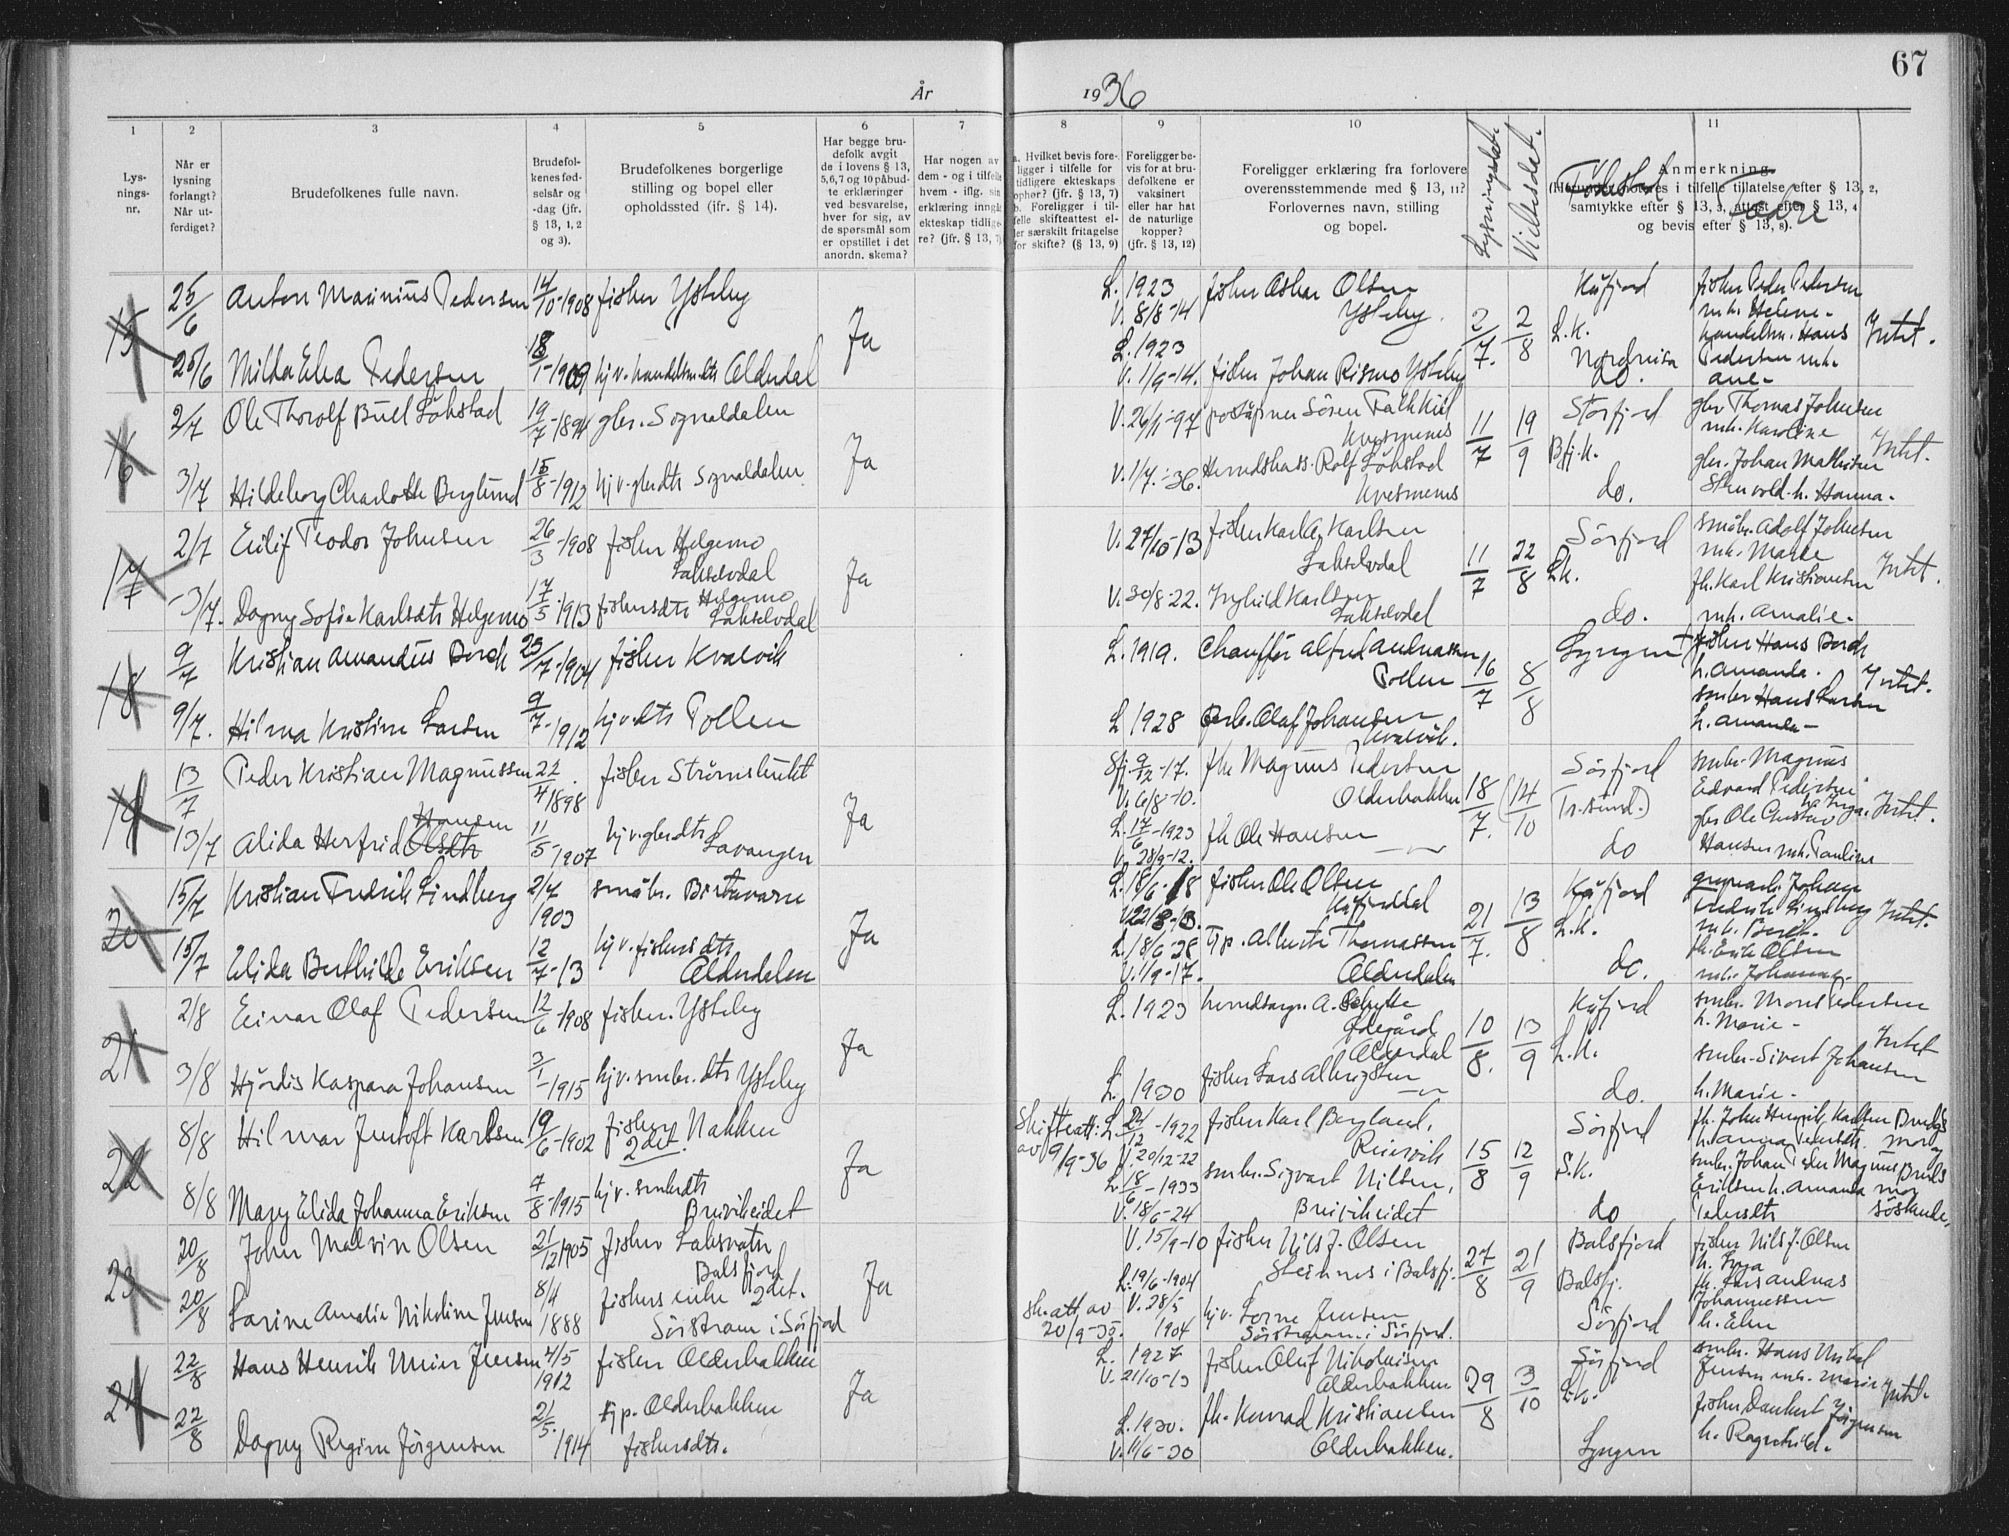 67
År 1936
1
2
3
4
5
6
7
8
9
10
11
Lys-
nings-
nr.
Når er
lysning
forlangt?
Når ut-
ferdiget?
Brudefolkenes fulle navn.
Brudefol-
kenes fød-
selsår og
-dag (jfr.
§ 13, 1, 2
og 3).
Brudefolkenes borgerlige
stilling og bopel eller
opholdssted (jfr. § 14).
Har begge bru-
defolk avgit
de i lovens § 13,
5, 6, 7 og 10 påbud-
te erklæringer
ved besvarelse,
hver for sig, av
de spørsmål som
er opstillet i det
anordn. skema?
Har nogen av
dem - og i tilfelle
hvem - iflg. sin
erklæring inngå
ekteskap tidlige-
re? (jfr. § 13, 7)
a. Hvilket bevis fore-
ligger i tilfelle for
tidligere ekteskaps
ophør? (jfr. § 13, 7)
b. Foreligger i til-
felle skifteattest el-
ler særskilt fritagelse
for skifte? (§ 13, 9)
Foreligger be-
vis for at bru-
defolkene er
vaksinert
eller har hat
de naturlige
kopper?
(jfr. § 13, 12)
Foreligger erklæring fra forlovere
overensstemmende med § 13, 11?
Forlovernes navn, stilling
og bopel.
Lysningsdat.
Vielsesdat.
Anmerkning.
(Herunder noteres i tilfelle tillatelse efter § 13, 2,
samtykke efter § 13, 3, attest efter § 13, 4
og bevis efter § 13, 8).
Fødested
15
25/6 Anton Marinius Pedersen 14/10-1908 fisker Ysteby
Ja
L. 1923
V. 8/8-14
fisker Oskar Olsen
Ysteby.
2/7. 2/8
Kåfjord
fisker Peder Pedersen
m.h. Helene.
25/6 Milda Elea Pedersen 18/1-1909 hj.v. handelsm.dtr. Olderdal
L. 1923
V. 1/9-14.
fisker Johan Rismo Ysteby
L.K.
Nordreisa
do.
handelsm. Hans
Pedersen m.h.
Ane-
Intet.
16
2/7 Ole Thorolf Buel Løkstad 19/7-1894 gbr. Signaldalen
Ja
V. 26/1-97 poståpner Søren Falk Kiil
Kvesmenes
11/7 19/9
Storfjord
gbr Thomas Johnsen
m.h. Karoline
3/7 Hildeborg Charlotte Berglund 15/8-1912 hj.v. gbrdtr Signaldalen.
V. 1/7.-36. Herredskass. Rolf Løkstad
Kvesmenes
Bfj.K.
do.
gbr. Johan Mathisen
h. Hanna.
Intet.
17
2/7 Eilif Teodor Johnsen 26/3-1908 fisker Helgemo
Lakselvdal
Ja
V. 27/10-13 fisker Karl A. Karlsen
Lakselvdal
11/7 22/8
Sörfjord
småbr. Adolf Johnsen
m.h. Marie
3/7. Dagny Sofie Karlsdtr Helgemo 17/5-1913 fiskersdtr Helgemo
Lakselvdal
V. 30/8-22. Inghild Karlsen
Lakselvdal
L.K.
do.
fh. Karl Kristiansen
m.h. Amalie.
Intet.
18
9/7 Kristian Amandus Borch 23/7-1904 fisker Kvalvik
L. 1919. Chauffør Alfred Andreassen
Pollen
16/7 8/8
Lyngen
fisker Hans Borch
h. Amanda.
9/7. Hilma Kristine Larsen 9/7-1912 hj.v.dtr Pollen
L 1928 Olaf Johansen
Kvalvik.
småbr Hans Larsen
h. Amanda-
Intet.
19
13/7 Peder Kristian Magnussen 22/4 1898 fisker Strømsbukt
Ja
9/12-17.
V. 6/8-10.
fh. Magnus Pedersen
Olderbakken
18/7. (14/10
Sörfjord
småbr. Magnus
Edvard Pedersen
13/7 Alida Herfrid Olsdtr Hansen 11/5-1907 hj.v. gbrdtr
Lavangen
L. 17/6-1923
V. 28/9-12.
fh. Ole Hansen
Tr.sund.)
do
gbr Ole Gustav
Hansen m.h. Pauline
Intet.
20
15/7 Kristian Fredrik Lindberg 2/7 1903 småbr. Birtavarre
Ja
L. 18/6-18
V. 22/8-13.
fisker Ole Olsen
Kåfjorddal
21/7. 13/8
Kåfjord
Johan
Fredrik Lindberg
m.h. Berit.
15/7 Elida Berthilde Eriksen 12/7-13 hj.v. fiskersdtr
Olderdalen
L. 18/6-28
V. 1/9-17.
tjp. Alberte Thomassen
Olderdalen
L.K.
do.
fh. Erik Olsen
m.h. Johanna-
Intet.
21
2/8 Einar Olaf Pedersen 12/6-1908 fisker. Ysteby
Ja
L. 1923 herredsagr. A. Schytte
Ødegård
Olderdal
10/8. 13/9
Kåfjord
småbr. Mons Pedersen
h. Marie-
3/8 Hjørdis Kaspara Johansen 3/1-1915 hj.v. småbr.dtr Ysteby
L. 1930 fisker Lars Albrigtsen
L.K.
do.
småbr. Sivert Johansen
h. Marie-
Intet
22
8/8 Hilmar Jentoft Karlsen 19/6-1902 fisker Nakken
2det.
Ja
Skifteatt.
av 9/9-36
L. 22/12-1922
V. 20/12-22
fisker Karl Bergland.
Reinsvik
15/8 12/9
Sörfjord
fh. John Henrik Karlsen
h. Anna Pedersdtr.
8/8 Mary Elida Johanna Eriksen 7/8-1915 hj.v. småbrdtr
Breivikeidet
L. 18/6-1933
V. 18/6-24
småbr. Sigvart Nilsen,
Breivikeidet
S.K.
do
småbr. Johan Peder Magnus
Eriksen h. Amanda
Pedersdtr
Bruds
mor og
Bruds
mor
søskende.
23
20/8 John Malvin Olsen 21/12 1905 fisker Laksvatn
Balsfjord
Ja
V. 15/9-10 fisker Nils J. Olsen
Steinnes i Balsfj.
27/8 21/9
Balsfjord
fisker Nils J. Olsen
h. Inga
20/8 Larine Amalie Nikoline Jensen 8/4 1888 fiskers enke 2det.
Sörstraum i Sörfjord
Sk.att. av
20/9-35.
L. 19/6-1904
V. 28/5 1904
hj.v. Lorne Jensen
Sörstraum i Sörfjord.
Balsfj.
Sörfjord
fh. Lars Andreas
Johannessen
h. Elen
24
22/8 Hans Henrik Meier Jensen 4/5 1912 fisker Olderbakken
Ja
L. 1927
V. 21/10-13
fisker Oluf Nikolaisen
Olderbakken
29/8 3/10
Sörfjord
småbr. Hans Mikal
Jensen m.h. Marie
22/8 Dagny Regine Jörgensen 21/5. 1914 tjp. Olderbakken
fiskersdtr.
L. 1930.
V. 11/6-30
fh. Konrad Kristiansen
Olderbakken.
L.K.
Lyngen
fisker Dankert Jörgensen
h. Ragnhild.
Intet.